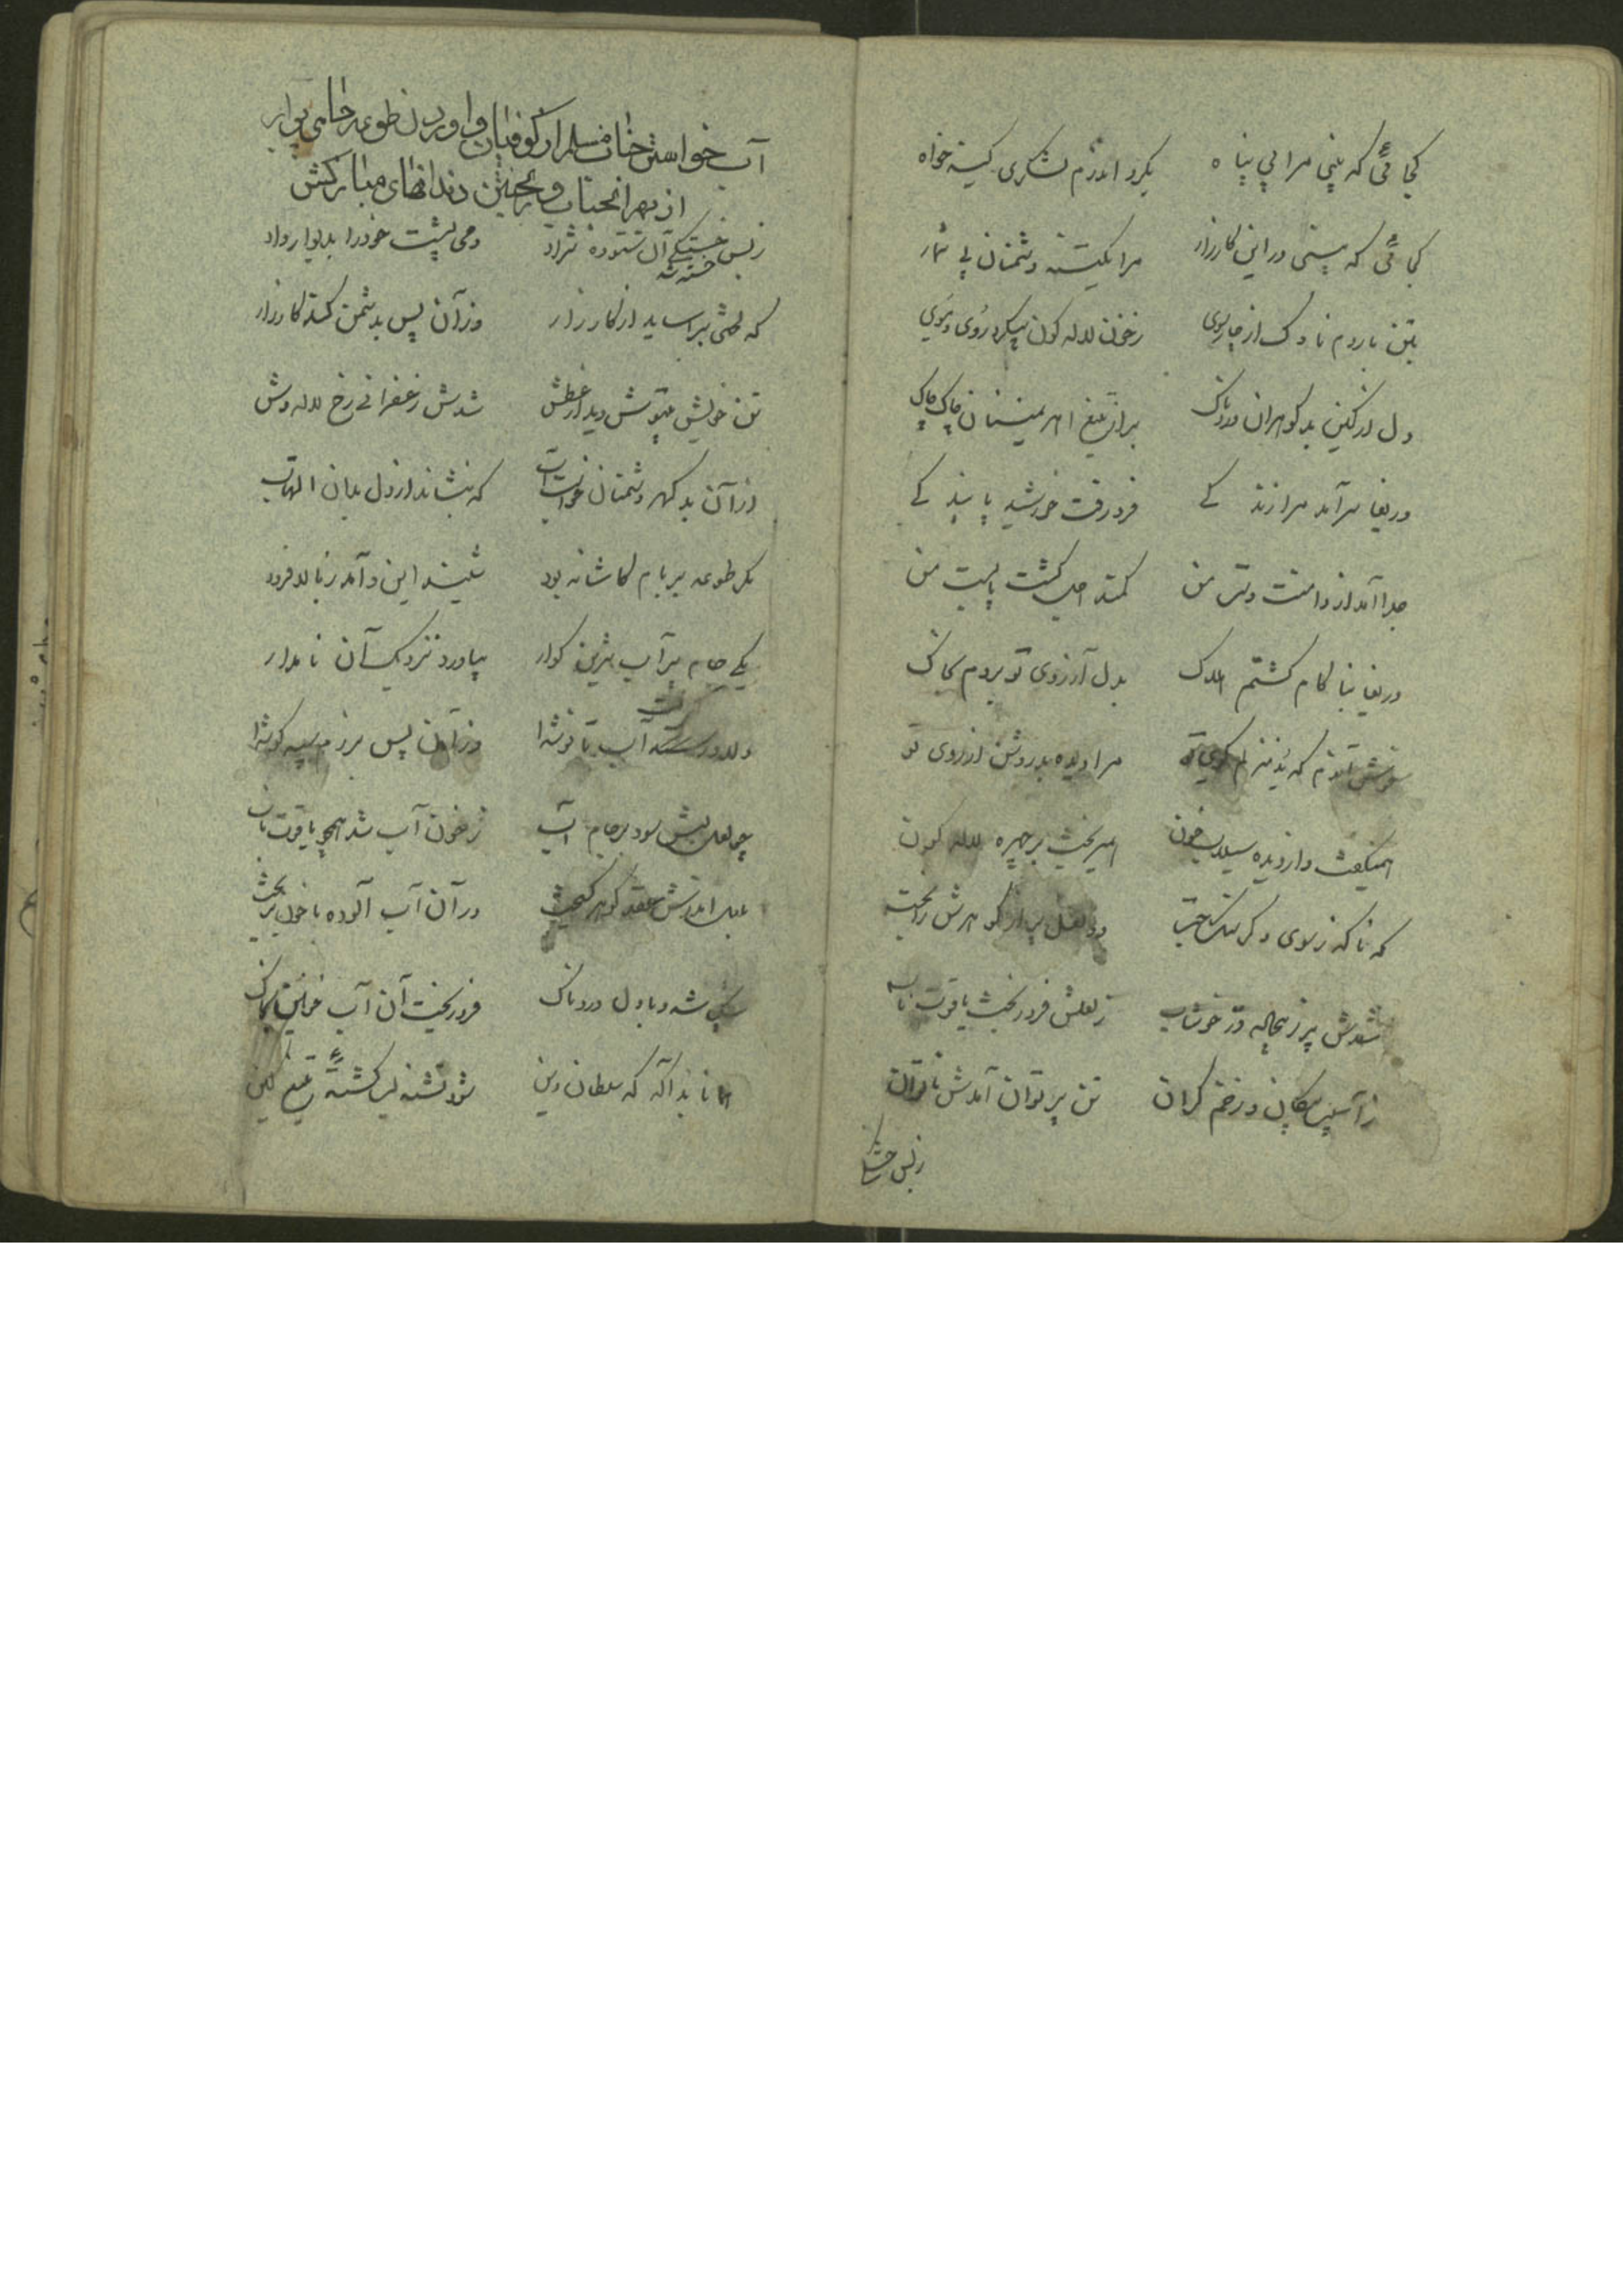 کجائی که بینی مرا بی پناه بگرد اندرم لشکری کینه خواه
کجائی که بینی در این کارزار مرا یکتنه دشمنان بی شمار
بتن باردم ناوک از چارسوی زخون لاله کون پیکر و روی و موی
دل از کین بدکوهران دردناک بر از تیغ اهریمنان چاک چاک
دریغا سرآمد مرا زندکی فرو رفت خورشید پایندکی
جدا آمد از دامنت دست من کمند اجل کشت پابست من
دریغا بناکام کشتم هلاک بدل آرزوی تو بردم بخاک
خوش آندم که بد منزلم کوی تو مرا دیده بد روشن از روی تو
همیکفت و از دیده سیلاب خون همیریخت بر چهره لاله کون
که ناکه ز سوی دکر سنک دو لعل پر از کوهرش را
شدش پر ز بیجاده در خوشاب ز لعلش فرو ریخت یاقوت ناب
ز آسیب پیکان و زخم کران تن پر توان آمدش ناتوان
زبس خستکی
آب خواستن جناب مسلم از کوفیان و آوردن طوعه جامی پر آب
از بهر آنجناب و ریختن دندانهای مبارکش
زبس خستکی آن ستوده نژاد دمی پشت خود را بدیوار داد
خسته شد
که لختی بر آساید از کارزار وزآن پس بدشمن کند کارزار
تن خویش بیتوش دید از عطش شدش زعفرانی رخ لاله وش
از آن بد کهر دشمنان خواست آب که بنشاند از دل بدان التهاب
مکر طوعه بر بام کاشانه بود شنید این و آمد ز بالا فرود
یکی جام پر آب شیرین کوار بیاورد نزدیک آن نامدار
دلاور آب تا نوشدا وزآن پس برزم سپه کوشدا
چو لعل لبش سود بر جام آب ز خون آب شد همچو یاقوت ناب
عقد کوهر در آن آب آلوده با خون بریخت
شه و با دل دردناک فرو ریخت آن آب خونین بخاک
همانا بد آکه که سلطان دین شود تشنه لب کشته تیغ کین